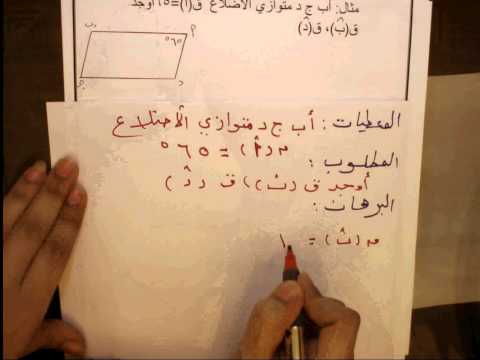 مثال: أب ج د متوازي الأضلاع ق(أ)=٦٥ أوجد
ق(بَ)، ق(دَ)
ب
أ
٦٥°
د
المعطيات: أب ج د متوازي الأضلاع
ق (أ) = ٦٥°
المطلوب:
أوجد ق (ب)، ق (د)
البرهان:
ق (ب) = ١